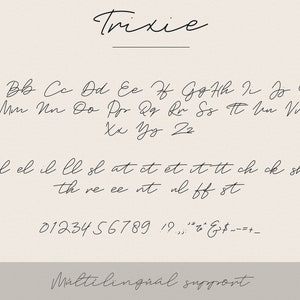 Trixie
Bb Cc Dd Ee Ff Gg Hh Ii Jj
Mm Nn Oo Pp Qq Rr Ss Tt Uu Vv
Xx Yy Zz
el il ll sl at ct et it tt ch ck sh
th re ee nt al ff st
0123456789
Multilingual support